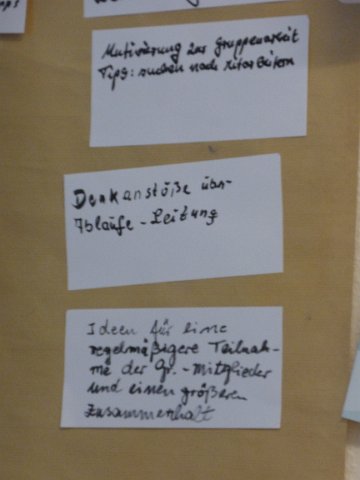 Motivierung zur Gruppenarbeit
Tips: suchen nach
Denkanstöße über
Abläufe - Leitung
Ideen für eine
regelmäßigere Teilnah-
me der Gr. - Mitglieder
und einen größeren
Zusammenhalt